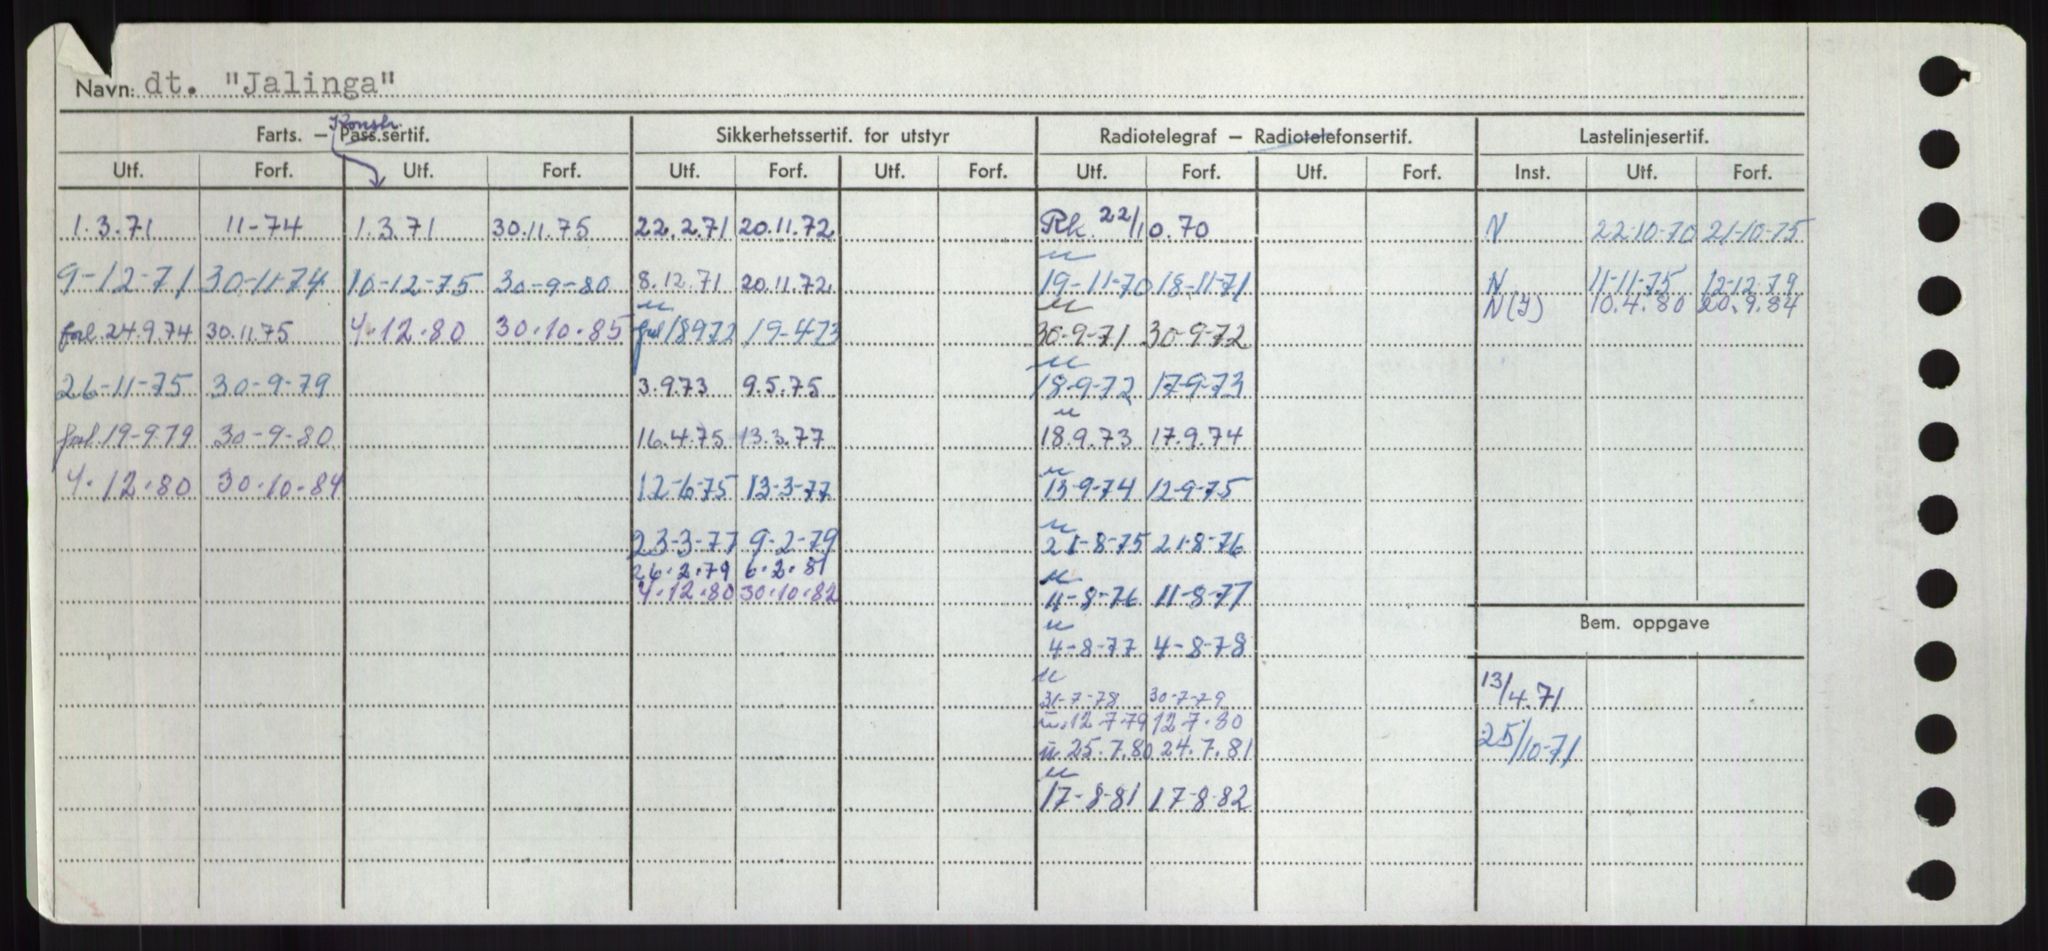 Navn: dt. "Jalinga"
Konstr.
Farts. — Pass.sertif. Sikkerhetssertif. for utstyr Radiotelegraf — Radiotelefonsertif. Lastelinjesertif.
Utf. Forf. Utf. Forf. Utf. Forf. Utf. Forf. Utf. Forf. Utf. Forf. Inst. Utf. Forf.
1.3.71 11-74 1.3.71 30.11.75 22.2.71 20.11.72 Rk. 22/10.70 N 22-10-70 21-10-75
9-12-71 30-11-74 10-12-75 30-9-80 8.12.71 20.11.72 19-11-70 18-11-71 N 11-11-75 12-12-79
N(I) 10.4.80 20.9.84
forl. 24.9.74 30.11.75 4.12.80 30.10.85 forl 18972 19-4-73 30-9-71 30-9-72
26-11-75 30-9-79 3.973 9.5.75 18-9-72 17-9-73
forl. 19-9.79 30-9-80 16.4.75 13.3.77 18.9.73 17.9.74
4.12.80 30.10.84 12-6-75 13-3-77 13-9-74 12-9-75
23-3-77 9-2-79 21-8-75 21-8-76
26.2.79 6.2.81
4.12.80 30.10.82 11-8-76 11-8-77
Bem. oppgave
4-8-77 4-8-78
31-7-78 30-7-79 13/4.71
12.7.79 12.7.80
25.7.80 24.7.81 25/10-71
17-8-81 17-8-82